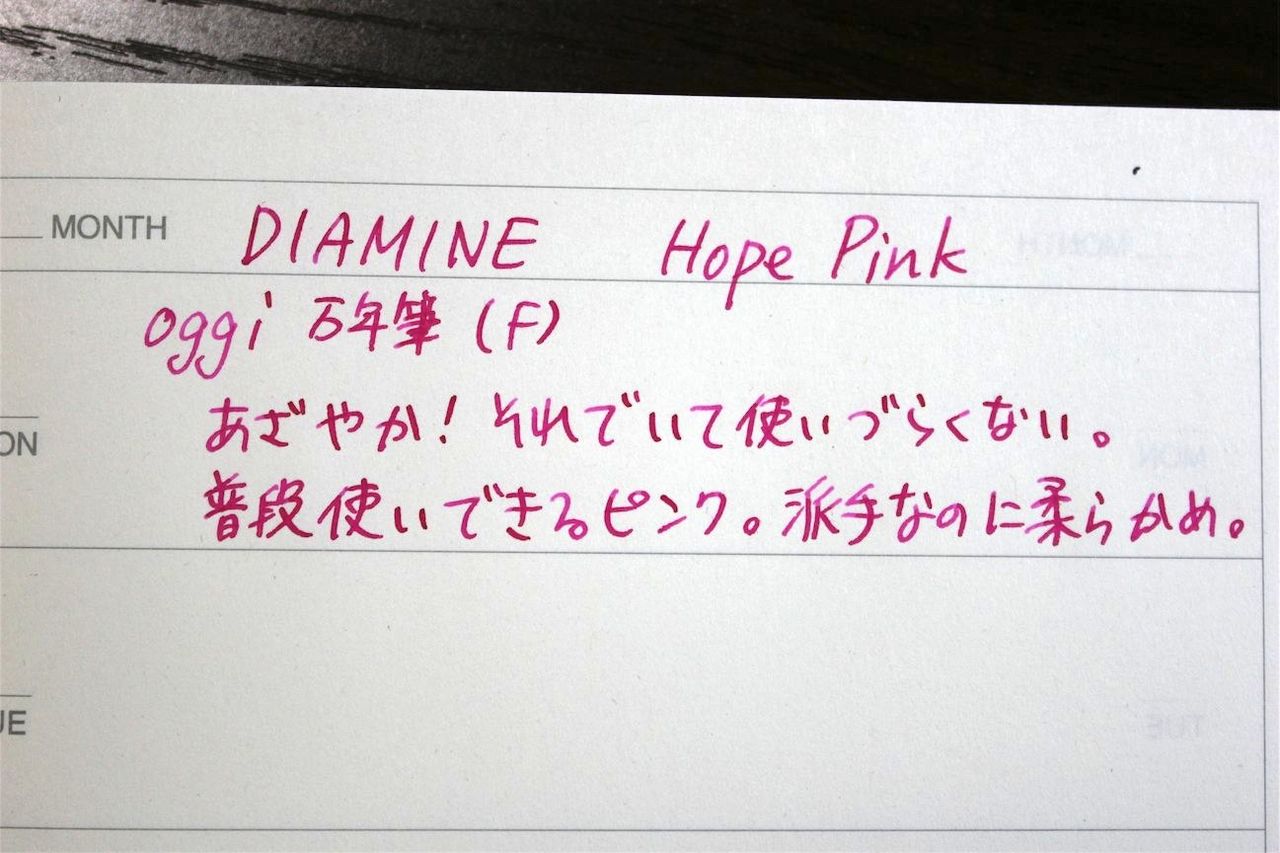 MONTH DIAMINE Hope Pink
oggi 万年筆 (F)
あざやか! それでいて使いづらくない。
ON
普段使いできるピンク。派手なのに柔らかめ。
UE